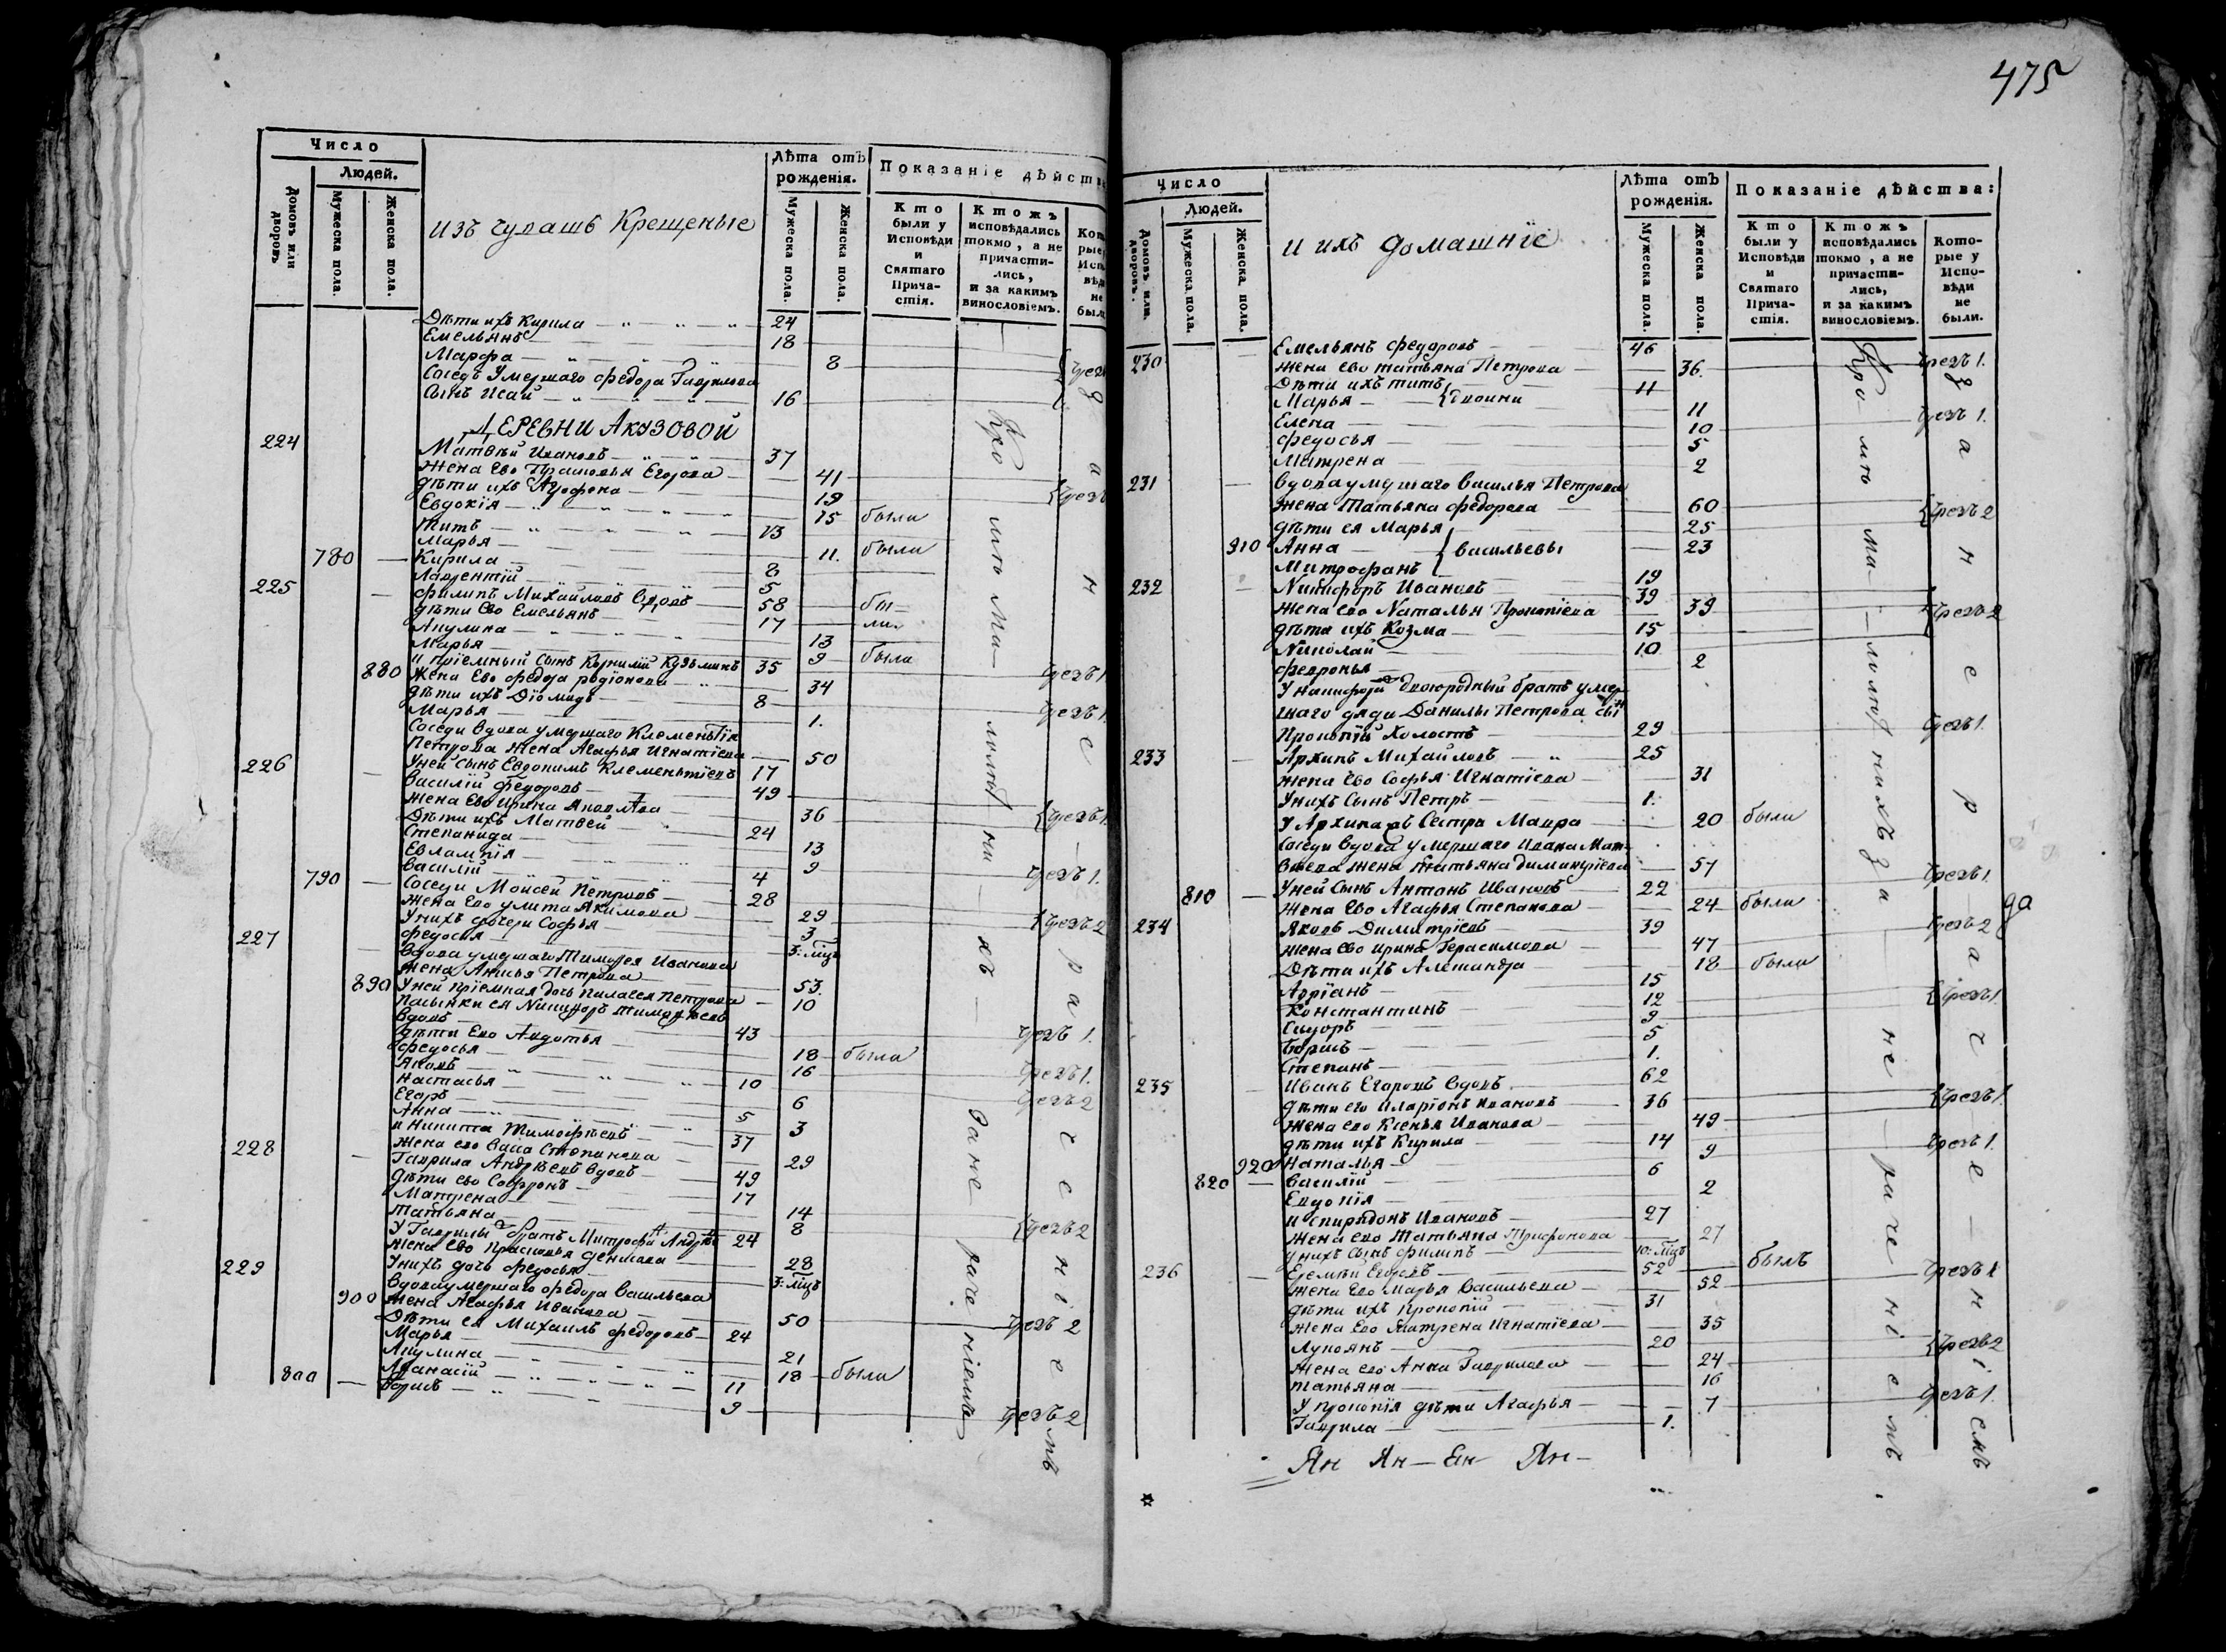 475
Число
Людей.
Домовъ или дворовъ
Мужеска пола.
Женска пола.
изъ чувашъ Крещеные
Лѣта отъ рожденія.
Мужеска пола.
Женска пола.
Показаніе дѣйств
Кто были у Исповѣди и Святаго Прича-стія.
Ктожъ исповѣдались токмо, а не причасти-лись, и за какимъ винословіемъ.
Дѣти ихъ Кирила 24
Емельянъ 18
Марфа 8
Соседъ Умершаго Федора Гаврилова
Сынъ Исай 16
ДЕРЕВНИ АКУЗОВОЙ
224 Матвѣй Ивановъ 37
Жена Ево Прасковья Егорова 41
дѣти ихъ 19
Евдокія 15 были
Титъ 13
Марья 11. были
780 Кирила 8
Лаврентій 5
225 Филипъ Михайловъ вдовъ 58 бы-
дѣти Ево Емельянъ 17 ли
Акулина 13
Марья 9 были
и пріемный сынъ Корнилій Кузьминъ 35
880 Жена Ево Федора родіонова 34 чрезъ 1
дѣти ихъ Діомидъ 8
Марья 1. чрезъ 1
Соседи вдова умершаго Клементія
Петрова жена Агафья Игнатіева 50
Уней сынъ Евдокимъ Клементіевъ 17
226 Василій Федоровъ 49
Жена Ево Ирина Яковлева 36
Дѣти ихъ Матвей 24
Степанида 13
Евлампія 9
Василій 4 чрезъ 1.
790 Соседи Мойсей Петровъ 28
Жена Ево улита Якимова 29
Унихъ дочери Софья 3 чрезъ 2
Федосия 3: мцъ
227 Вдова умершаго Тимофея Иванова
жена Анисья Петрова 53.
890 Уней пріемная дочь Пилагея Петрова 10
пасынки ея Никифоръ Тимофеевъ
вдовъ 43 чрезъ 1.
дѣти Ево Авдотья 18 была
Федосья 16 чрезъ 1.
Яковъ 10
Настасья 6 чрезъ 2
Егоръ 5
Анна 3
и Никита Тимофѣевъ 37
Жена ево Васа Степанова 29
228 Гаврила Андрѣевъ вдовъ 49
дѣти ево Софронъ 17
Матрена 14
Татьяна 8 чрезъ 2
У Гаврилы братъ Митрофанъ Андрѣевъ 24
Жена Ево Прасковья 28
Унихъ дочь Федосья 3: мцъ
229 Вдова умершаго Федора Васильева
900 Жена Агафья Иванова 50
Дѣти ея Михаилъ Федоровъ 24 чрезъ 2
Марья 21
Акулина 18 была
800 Афанасій 11
Борисъ 9 чрезъ 2
Число
Людей.
Домовъ или дворовъ.
Мужеска пола.
Женска пола.
и ихъ домашніе
Лѣта отъ рожденія.
Мужеска пола.
Женска пола.
Показаніе дѣйства:
Кто были у Исповѣди и Святаго Прича-стія.
Ктожъ исповѣдались токмо, а не причасти-лись, и за какимъ винословіемъ.
Кото-рые у Испо-вѣди не были.
230 Емельянъ Федоровъ 46 чрезъ 1.
жена ево татьяна Петрова 36.
Дѣти ихъ титъ 11
Марья двойни 11 чрезъ 1.
Елена 10
Федосья 5
Матрена 2
231 Вдова умершаго Василья Петрова
жена Татьяна Федорова 60 чрезъ 2
дѣти ея Марья 25
910 Анна Васильевы 23
Митрофанъ 19
232 Никифоръ Ивановъ 39
Жена ево Наталья Прокопіева 39 чрезъ 2
дѣти ихъ Козма 15
Николай 10
Февронья 2
У Никифора двоюродный братъ умер-
шаго дяди Данилы Петрова сынъ
Прокопій Холостъ 29 чрезъ 1.
233 Архипъ Михайловъ 25
жена Ево Софья Игнатіева 31
Унихъ сынъ Петръ 1.
У Архипа Сестра Мавра 20 были
Соседи вдова умершаго Ивана Мат-
вѣева жена татьяна димитріева 57 чрезъ 1.
810 Уней сынъ Антонъ Ивановъ 22
Жена Ево Агафья Степанова 24 были
234 Яковъ Димитріевъ 39 чрезъ 2
жена Ево ирина Герасимова 47
Дѣти ихъ Александра 18 были
Адріанъ 15
Константинъ 12 чрезъ 1
Сидоръ 9
Борисъ 5
Степанъ 1.
235 Иванъ Егоровъ вдовъ 62
дѣти его Иларіонъ Ивановъ 36 чрезъ 1.
жена ево Ксенья Иванова 49
дѣти ихъ Кирила 14 чрезъ 1.
920 Наталья 9
820 Василій 6
Евдокія 2
и спиридонъ Ивановъ 27
Жена ево Татьяна Трифонова 27
унихъ сынъ филипъ 10: мцъ
236 Еремѣй Егоровъ 52 былъ чрезъ 1
жена Ево Марья Васильева 52
Дѣти ихъ прокопій 31
жена Ево Матрена Игнатіева 35
Лукоянъ 20 чрезъ 2
жена его Анна Гаврилова 24
татьяна 16
У прокопія дѣти Агафья 7 чрезъ 1.
Гаврила 1.